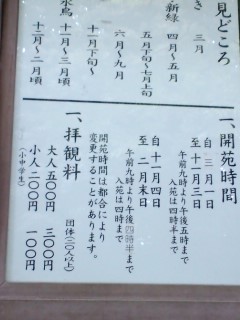 見どころ
き 三月
新緑 四月〜五月
五月下旬〜七月上旬
六月〜九月
十一月下旬〜
十一月〜三月頃
水鳥
十二月〜二月頃
一、開苑時間
自 三月一日
至 十一月三日
午前九時より午後五時まで
入苑は四時まで
自 十一月四日
至 二月末日
午前九時より午後四時半まで
入苑は四時まで
開苑時間は都合により
変更することがあります。
一、拝観料
団体(二〇人以上)
大人 五〇〇円 三〇〇円
小人 二〇〇円 一〇〇円
(小中学生)